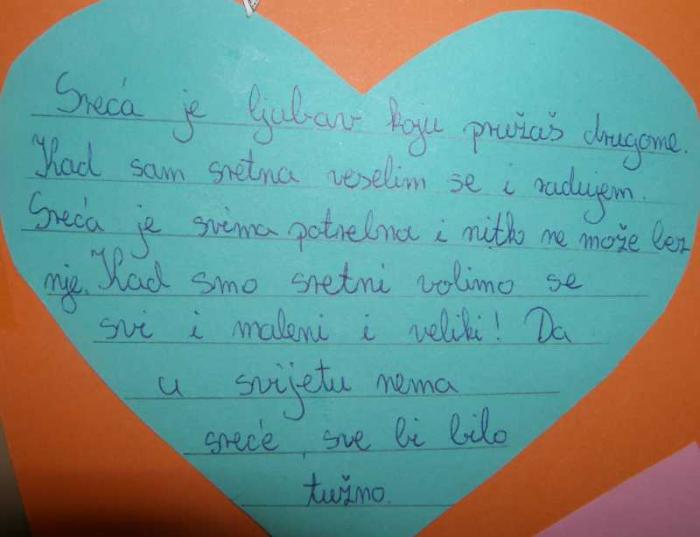 Sreća je ljubav koju pružaš drugome.
Kad sam sretna veselim se i radujem.
Sreća je svima potrebna i nitko ne može bez
nje. Kad smo sretni volimo se
svi i maleni i veliki! Da
u svijetu nema
sreće, sve bi bilo
tužno.